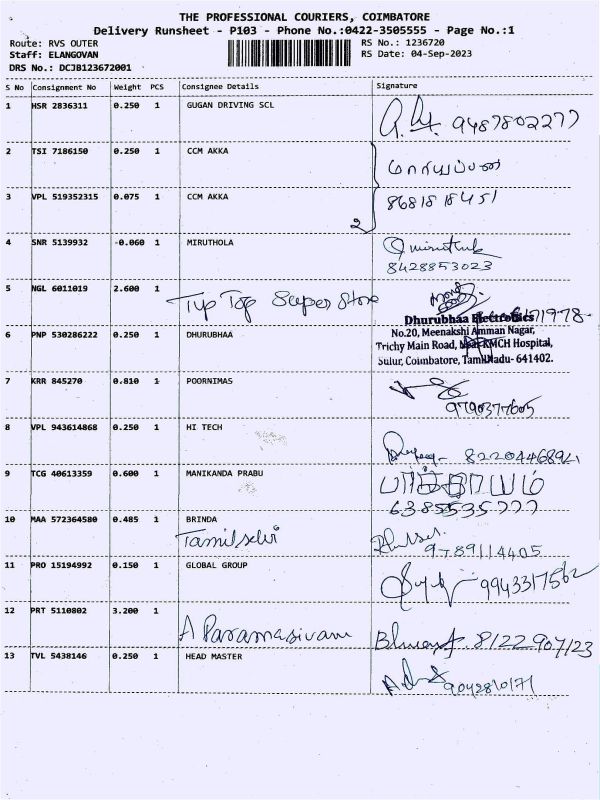 THE PROFESSIONAL COURIERS, COIMBATORE
Delivery Runsheet - P103 - Phone No.:0422-3505555 - Page No.:1
Route: RVS OUTER RS No.: 1236720
Staff: ELANGOVAN RS Date: 04-Sep-2023
DRS No.: DCJB123672001
S No Consignment No Weight PCS Consignee Details Signature
1 HSR 2836311 0.250 1 GUGAN DRIVING SCL
9487802277
2 TSI 7186150 0.250 1 CCM AKKA
மாரியப்பன்
3 VPL 519352315 0.075 1 CCM AKKA
8681818451
2
4 SNR 5139932 -0.060 1 MIRUTHOLA
8428853023
5 NGL 6011019 2.600 1
Tip Top Super Store
Dhurubhaa Electronics
6 PNP 530286222 0.250 1 DHURUBHAA No.20, Meenakshi Amman Nagar,
Trichy Main Road, Near KMCH Hospital,
Sulur, Coimbatore, TamilNadu- 641402.
7 KRR 845270 0.810 1 POORNIMAS
9790377605
8 VPL 943614868 0.250 1 HI TECH
9 TCG 40613359 0.600 1 MANIKANDA PRABU
6385535777
10 MAA 572364580 0.485 1 BRINDA
Tamilselvi 9789114405
11 PRO 15194992 0.150 1 GLOBAL GROUP
9943317562
12 PRT 5110802 3.200 1
A Paramasivam 8122907123
13 TVL 5438146 0.250 1 HEAD MASTER
9042810171